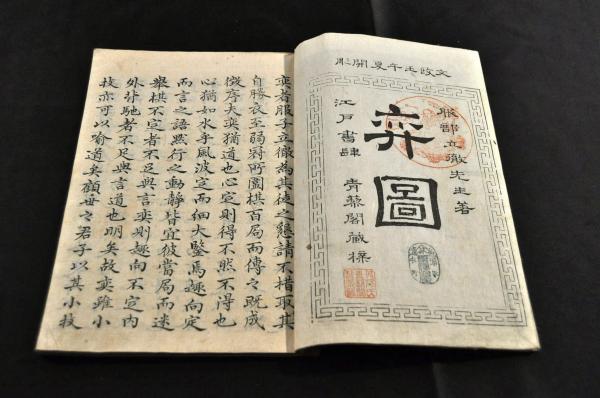 文政壬午夏開彫
服部立徹先生著
弈圖
江戸書肆 青藜閣藏梓
奕者服子立徹為其徒之懇請不惜取其
自勝衣至弱冠所圍棋百局而傳之既成
徴序夫奕猶道也心定則得不然不得也
心猶如水乎風波定而細大鑒焉趣向定
而言之語黙行之動静皆宜彼當局而迷
舉棋不定者不足與言奕則趣向不定内
外紛馳者不足與言道也明矣故奕雖小
技亦可以喻道矣顧世之君子以其小技